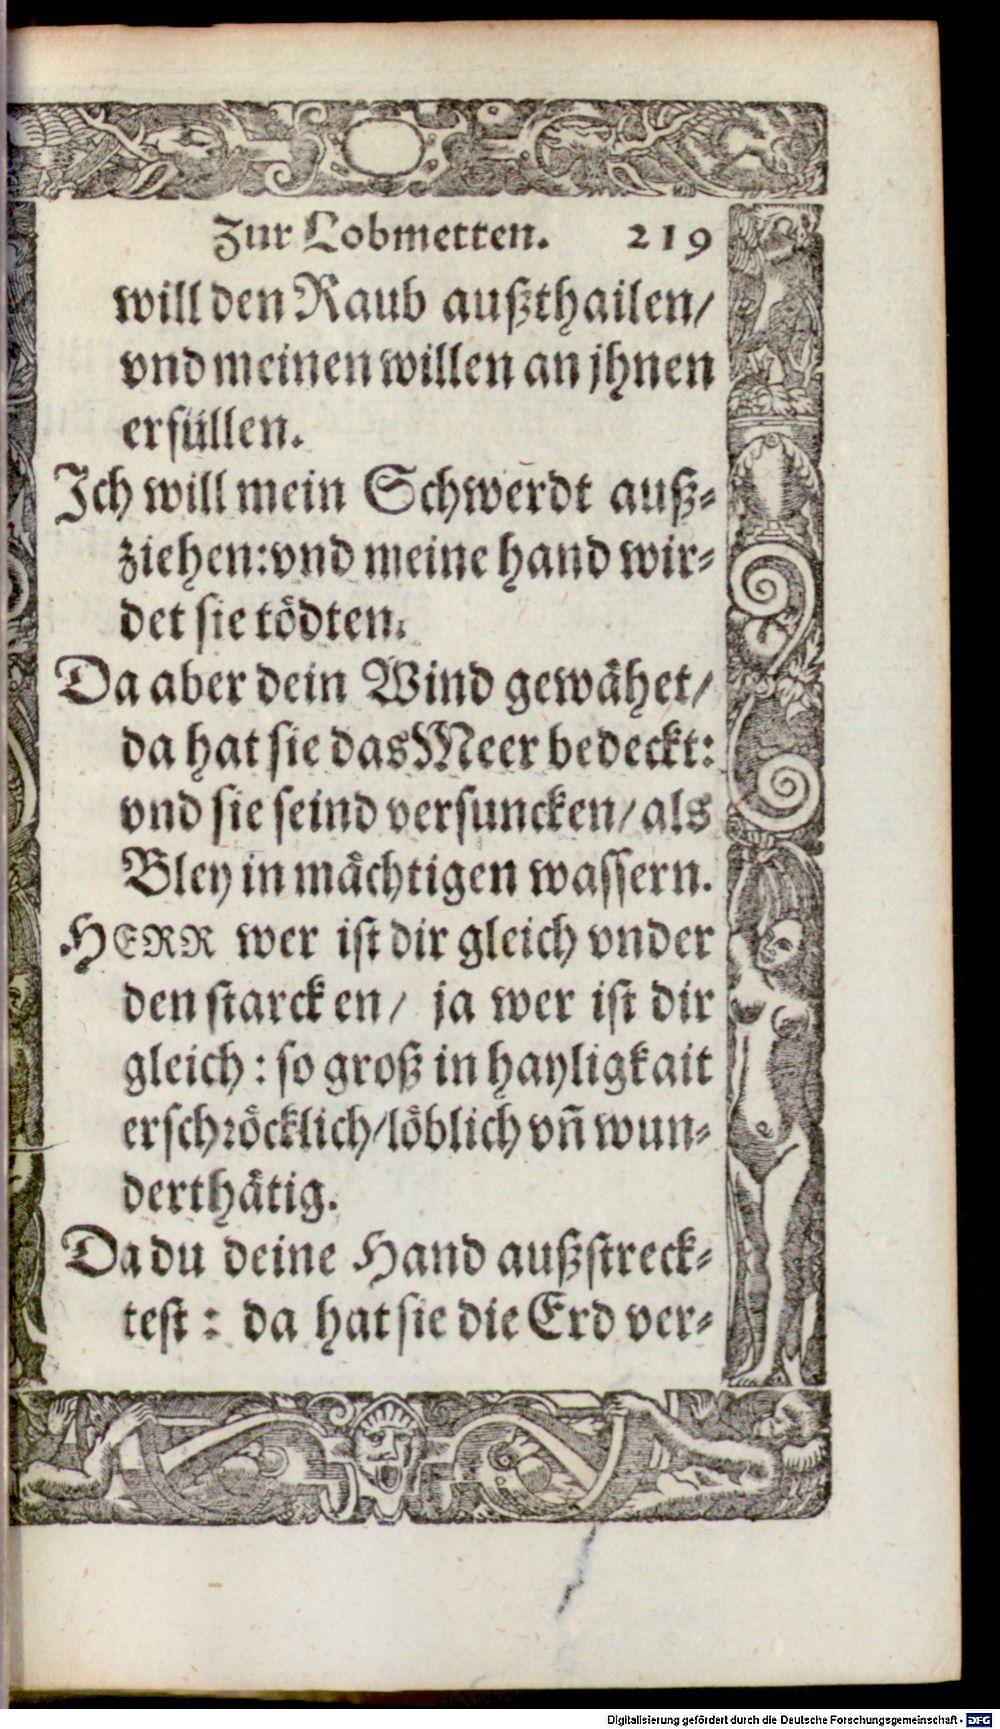 Zur Lobmetten. 219
will den Raub außthailen/
vnd meinen willen an jhnen
erfüllen.
Ich will mein Schwerdt auß⸗
ziehen: vnd meine hand wir⸗
det sie tödten.
Da aber dein Wind gewähet/
da hat sie das Meer bedeckt:
vnd sie seind versuncken/ als
Bley in mächtigen wassern.
HERR wer ist dir gleich vnder
den starcken/ ja wer ist dir
gleich: so groß in hayligkait
erschröcklich/ löblich vñ wun⸗
derthätig.
Da du deine Hand außstreck⸗
test: da hat sie die Erd ver⸗
Digitalisierung gefördert durch die Deutsche Forschungsgemeinschaft - DFG